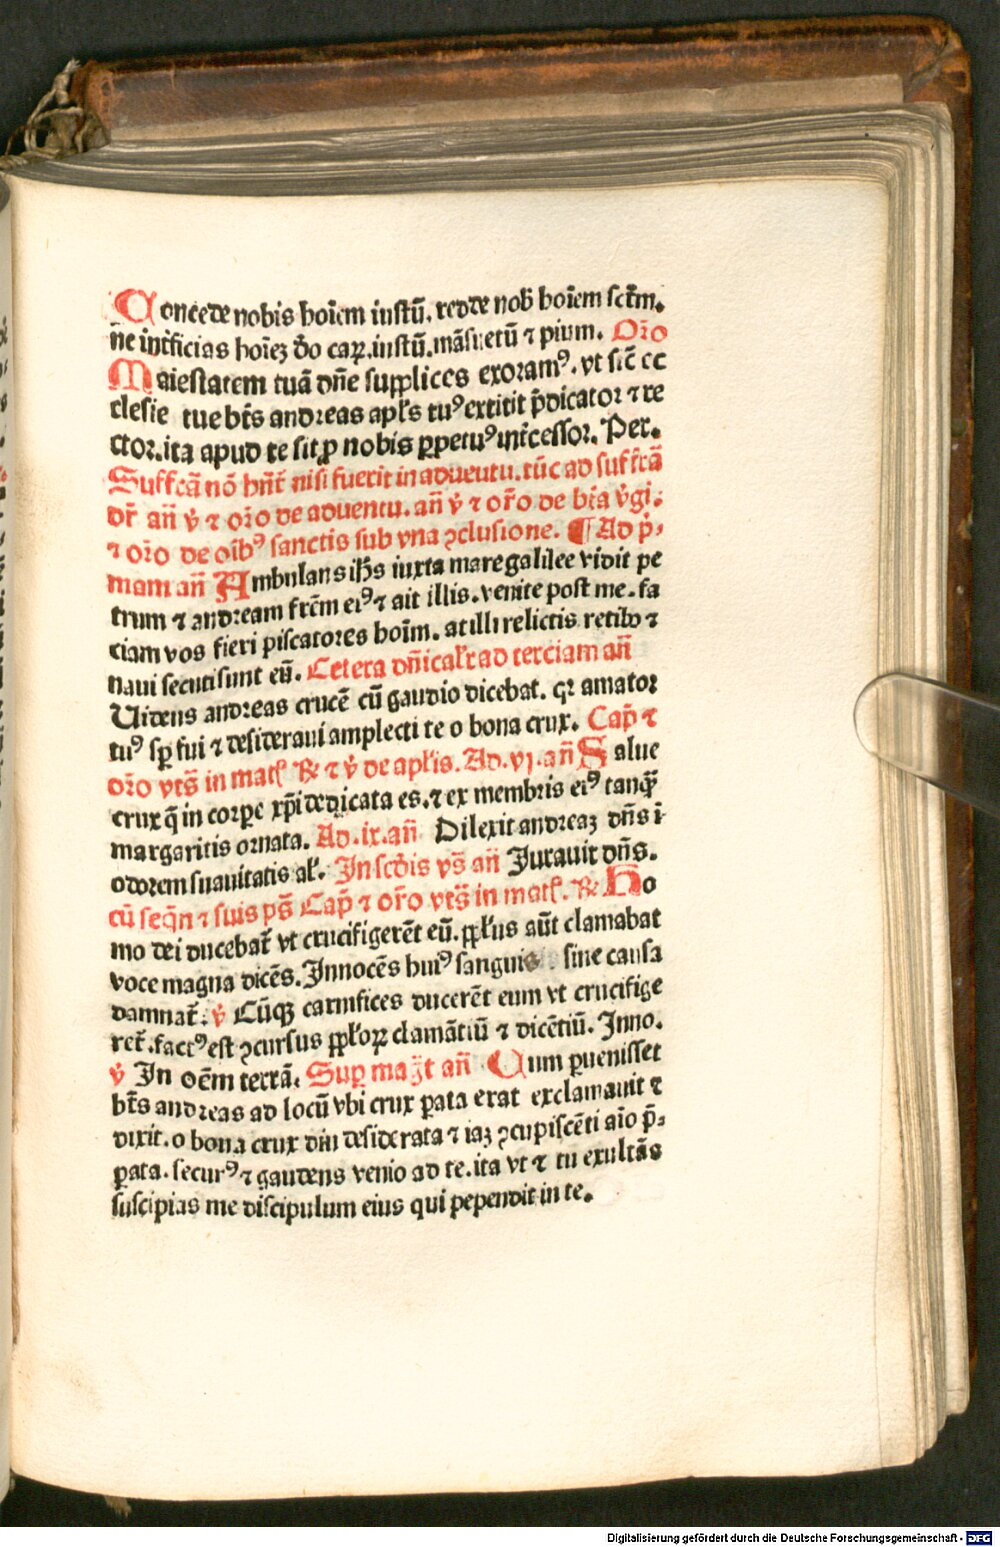 Concede nobis hoīem iustū. redde nob̄ hoīem sctm̄.
ne int̄ficias hoīeʒ do caꝝ. iustū. māsuetū ⁊ pium. Oro̅
Maiestatem tuā dn̄e supplices exoramꝰ. vt sic̄ ec
clesie tue bt̄s andreas apl̄s tuꝰ extitit p̄dicator ⁊ re
ctor. ita apud te sit ꝓ nobis ꝑpetuꝰ int̄cessor. Per.
Suffrā nō hn̄t nisi fuerit in aduentu. tūc ad suffrā
dr̄ an̄ v̄ ⁊ oro̅ de aduentu. an̄ v̄ ⁊ oro̅ de bt̄a v̄gi.
⁊ oro̅ de oībꝰ sanctis sub vna ꝯclusione. ¶ Ad p̄-
mam an̄ Ambulans ih̄s iuxta mare galilee vidit pe
trum ⁊ andream frēm eiꝰ ⁊ ait illis. venite post me. fa
ciam vos fieri piscatores hoīm. at illi relictis retibꝰ ⁊
naui secuti sunt eū. Cetera dn̄ical̄r ad terciam an̄
Uidens andreas crucē cū gaudio dicebat. qr amator
tuꝰ sꝑ fui ⁊ desideraui amplecti te o bona crux. Cap̄ ⁊
oro̅ vts̄ in matl̄ ℟ ⁊ v̄ de apl̄is. Ad. vj. an̄ Salue
crux q̄ in corꝑe xp̄i dedicata es. ⁊ ex membris eiꝰ tanq̄ꝫ
margaritis ornata. Ad. ix. an̄ Dilexit andreaʒ dn̄s ī
odorem suauitatis al̄. In scd̄is vs̄ an̄ Jurauit dn̄s.
cū seqn̄ ⁊ suis ps̄ Cap̄ ⁊ oro̅ vts̄ in matl̄. ℟ Ho
mo dei ducebat̄ vt crucifigerēt eū. ppl̄us aūt clamabat
voce magna dicēs. Innocēs huiꝰ sanguis . sine causa
damnat̄. v̄ Cūqꝫ carnifices ducerēt eum vt crucifige
ret̄. factꝰ est ꝯcursus ppl̄oꝝ clamātiū ⁊ dicētiū. Inno.
v̄ In oēm terrā. Suꝑ maḡt an̄ Cum ꝑuenisset
bt̄s andreas ad locū vbi crux ꝑata erat exclamauit ⁊
dixit. o bona crux diu desiderata ⁊ iaʒ ꝯcupiscēti aīo p̄-
ꝑata. securꝰ ⁊ gaudens venio ad te. ita vt ⁊ tu exultās
suscipias me discipulum eius qui pependit in te.
Digitalisierung gefördert durch die Deutsche Forschungsgemeinschaft - DFG